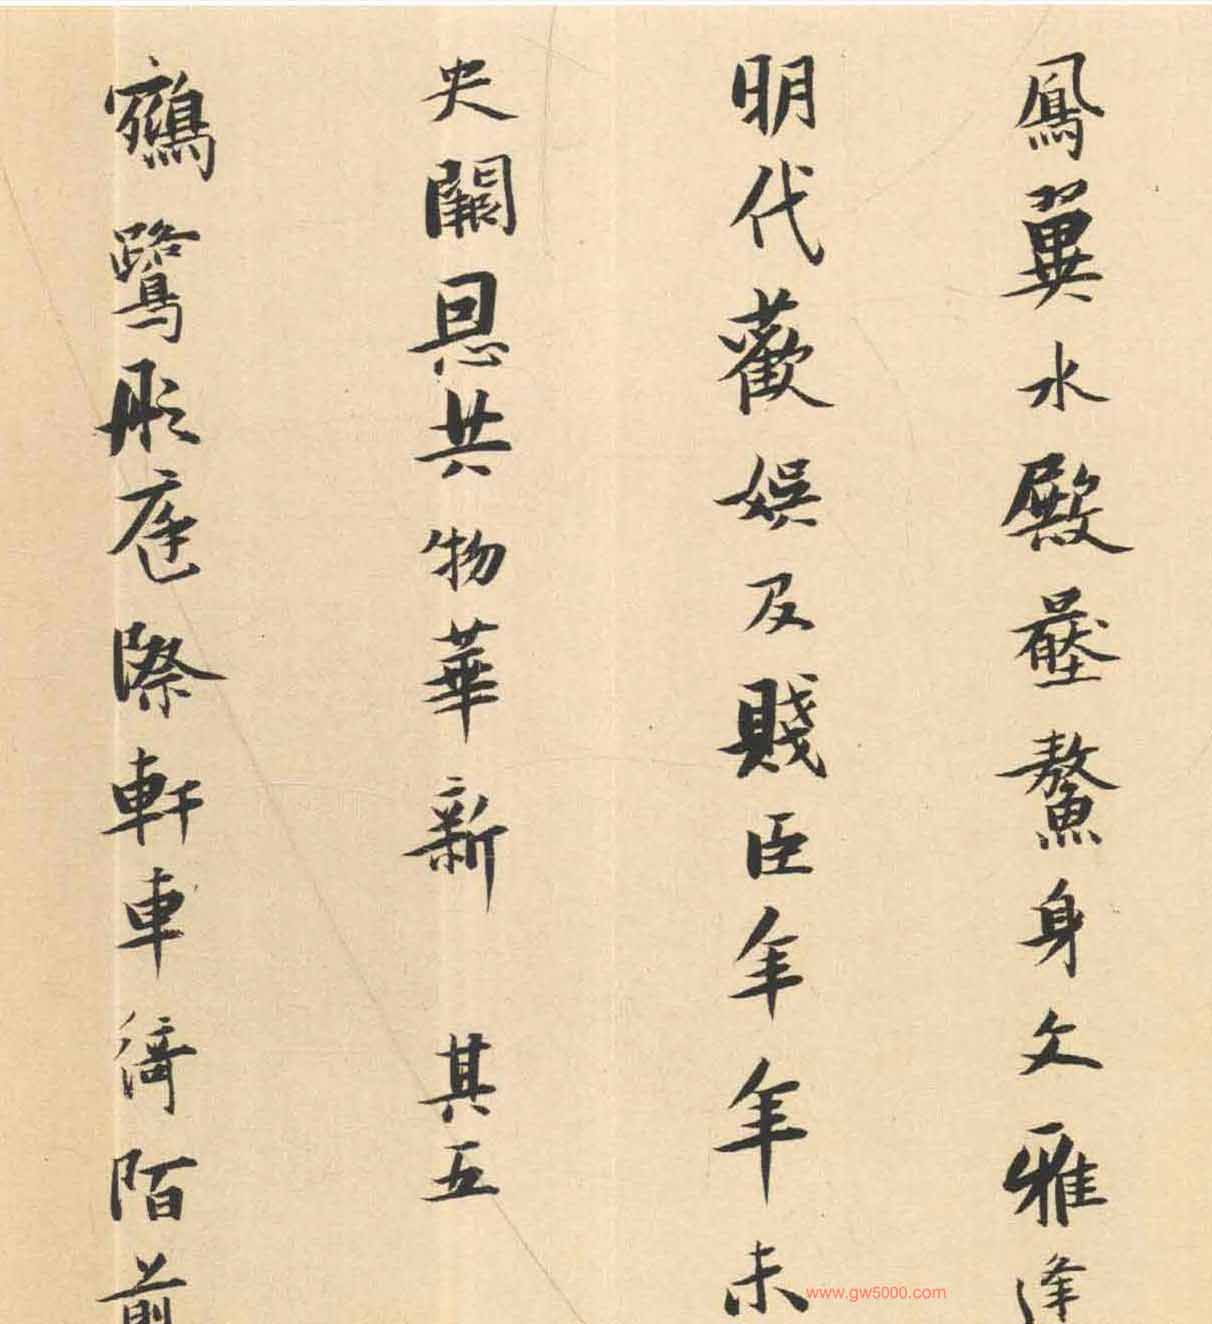 鳳翼水殿壓鰲身文雅逢
明代歡娛及賤臣年年未
央闕恩共物華新 其五
鵷鷺彤庭際軒車綺陌前
www.gw5000.com